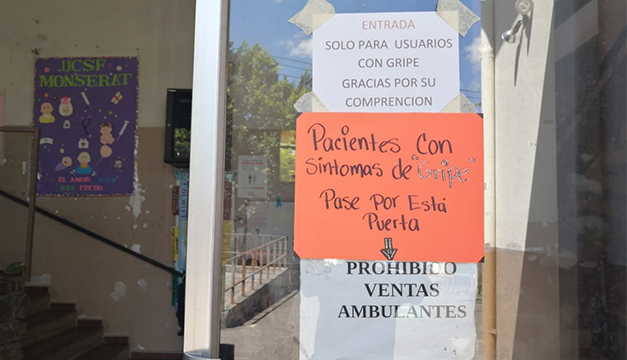 UCSF
MONSERAT
EL AMOR
DEL PECHO
ENTRADA
SOLO PARA USUARIOS
CON GRIPE
GRACIAS POR SU
COMPRENCION
Pacientes Con
Síntomas de "Gripe"
Pase Por Está
Puerta
PROHIBIDO
VENTAS
AMBULANTES